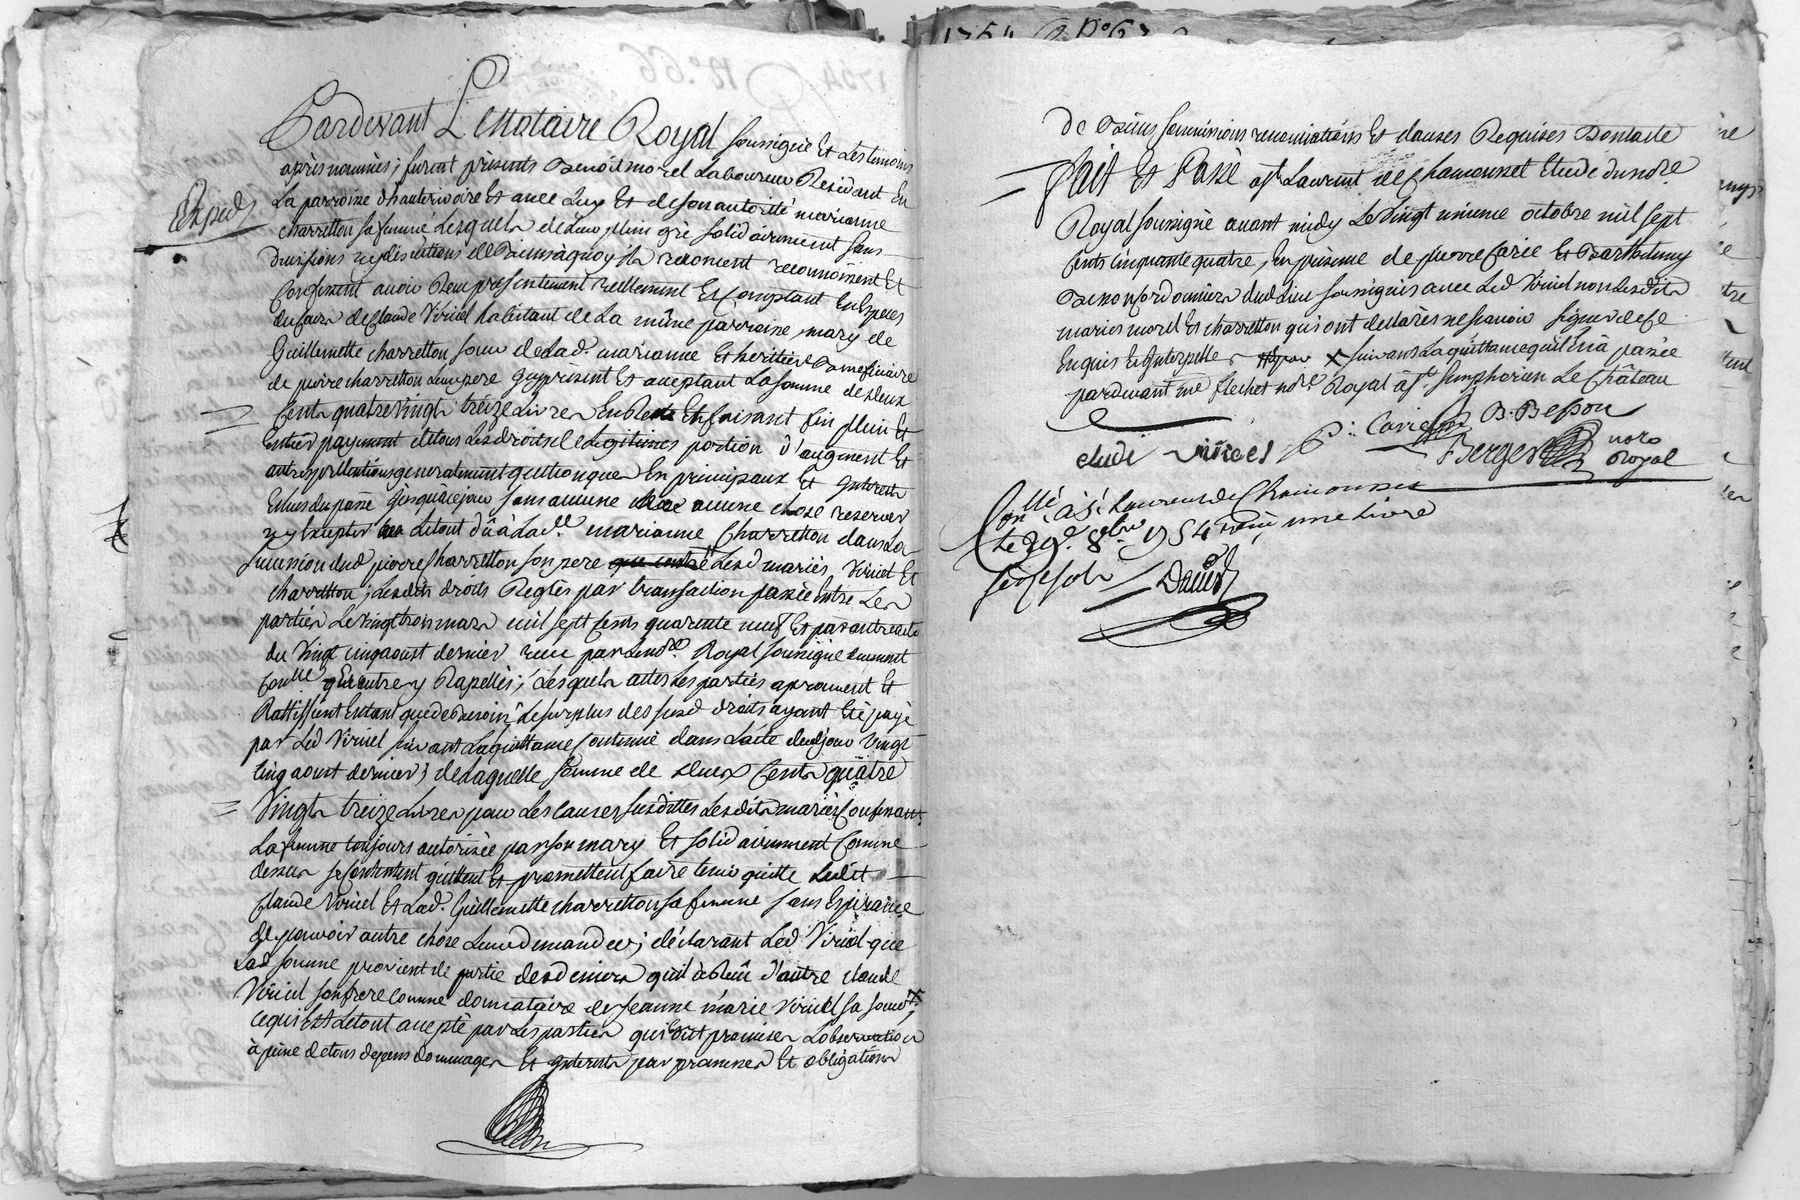 Pardevant Le Notaire Royal soussigné Et Les temoins
après nommés ; furent présents Benoit morel Laboureur Residant En
Exped
La parroisse d'hauterivoire Et avec Luy Et de son autorité marianne
charretton sa femme Lesquels de Leur plein gré solidairement sans
divisions ny discutions de Biens àquoy ils renoncent reconnoissent Et
Confessent avoir Reçu presentement reellement Et Comptant En Especes
du faira de Claude Viriçel habitant de La même parroisse, mary de
Guillemette charretton soeur de Lad. marianne Et heritiere Beneficiaire
de pierre charretton Leur pere Gyprésent Et aceptant La somme de deux
Cents quatre vingts treize Livres En Reste Et faisant fin plein Et
Entier payement de tous Les droits de Legitimes portion d'augment Et
autres pretentions generalement quelconques En principaux Et Interests
Echus du passé jusquàcejour sans aucune aucune chose reserver
ny Excepter Le tout dû à Lad.e marianne Charretton dans La
succession dud pierre charretton son pere Lesd mariés Viriçel Et
charretton ; Lesdits droits Reglés par transaction passée Entre Les
parties Le vingt trois mars mil sept Cents quarante neuf Et par autre acte
du Vingt cinq aoust dernier reçu par Le no.re Royal soussigné duement
Con.llé y Rapellés ; Lesquels actes Les parties aprouvent Et
Rattiffient Entant que de Besoin, Le surplus des susd droits ayant Eté payé
par Led Viriçel suivant La quittance Contenuë dans L'acte dud jour Vingt
Cinq aoust dernier ; de Laquelle somme de deux Cents quatre
Vingts treize Livres pour Les causes susdittes Lesdits mariés Confessants
La femme toujours autorisée par son mary Et solidairement Comme
dessus se Contentent quittent Et promettent faire tenir quitte Ledit
Claude Viriçel Et Lad. Guillemette charretton sa femme sans Espérance
de pouvoir autre chose Leur demander ; déclarant Led. Viriçel que
Lad somme provient de partie des deniers quil à Reçu d'autre claude
Viriçel son frere Comme donnataire de Jeanne marie Viriçel sa soeur X
ce qui Est Letout acepté par Les parties qui Ont promises L'observation
à peine de tous depens dommages Et Interests par promesses Et obligations
de Biens soumissions renonciations Et clauses Requises Dont acte
Fait Et Passé à St Laurent de Chamousset Etude du no.re
Royal soussigné avant midy Le Vingt unieme octobre mil sept
Cents Cinquante quatre, En présence de pierre Carie Et Barthelemy
Besson cordonniers dud Lieu soussignés avec Led Viriçel non Lesdits
mariés morel Et charretton qui ont declarés ne sçavoir signer de ce
Enquis Et Interpellés X suivant La quittance quil En à passée
pardevant me flechet no.re Royal à St simphorien Le Château
claude viriçel P: Carie B. Besson
Berger no.re
Royal
Con.llé à St Laurent de Chamousset
Le 29e 8bre 1754 reçu, une Livre
six sols Davier